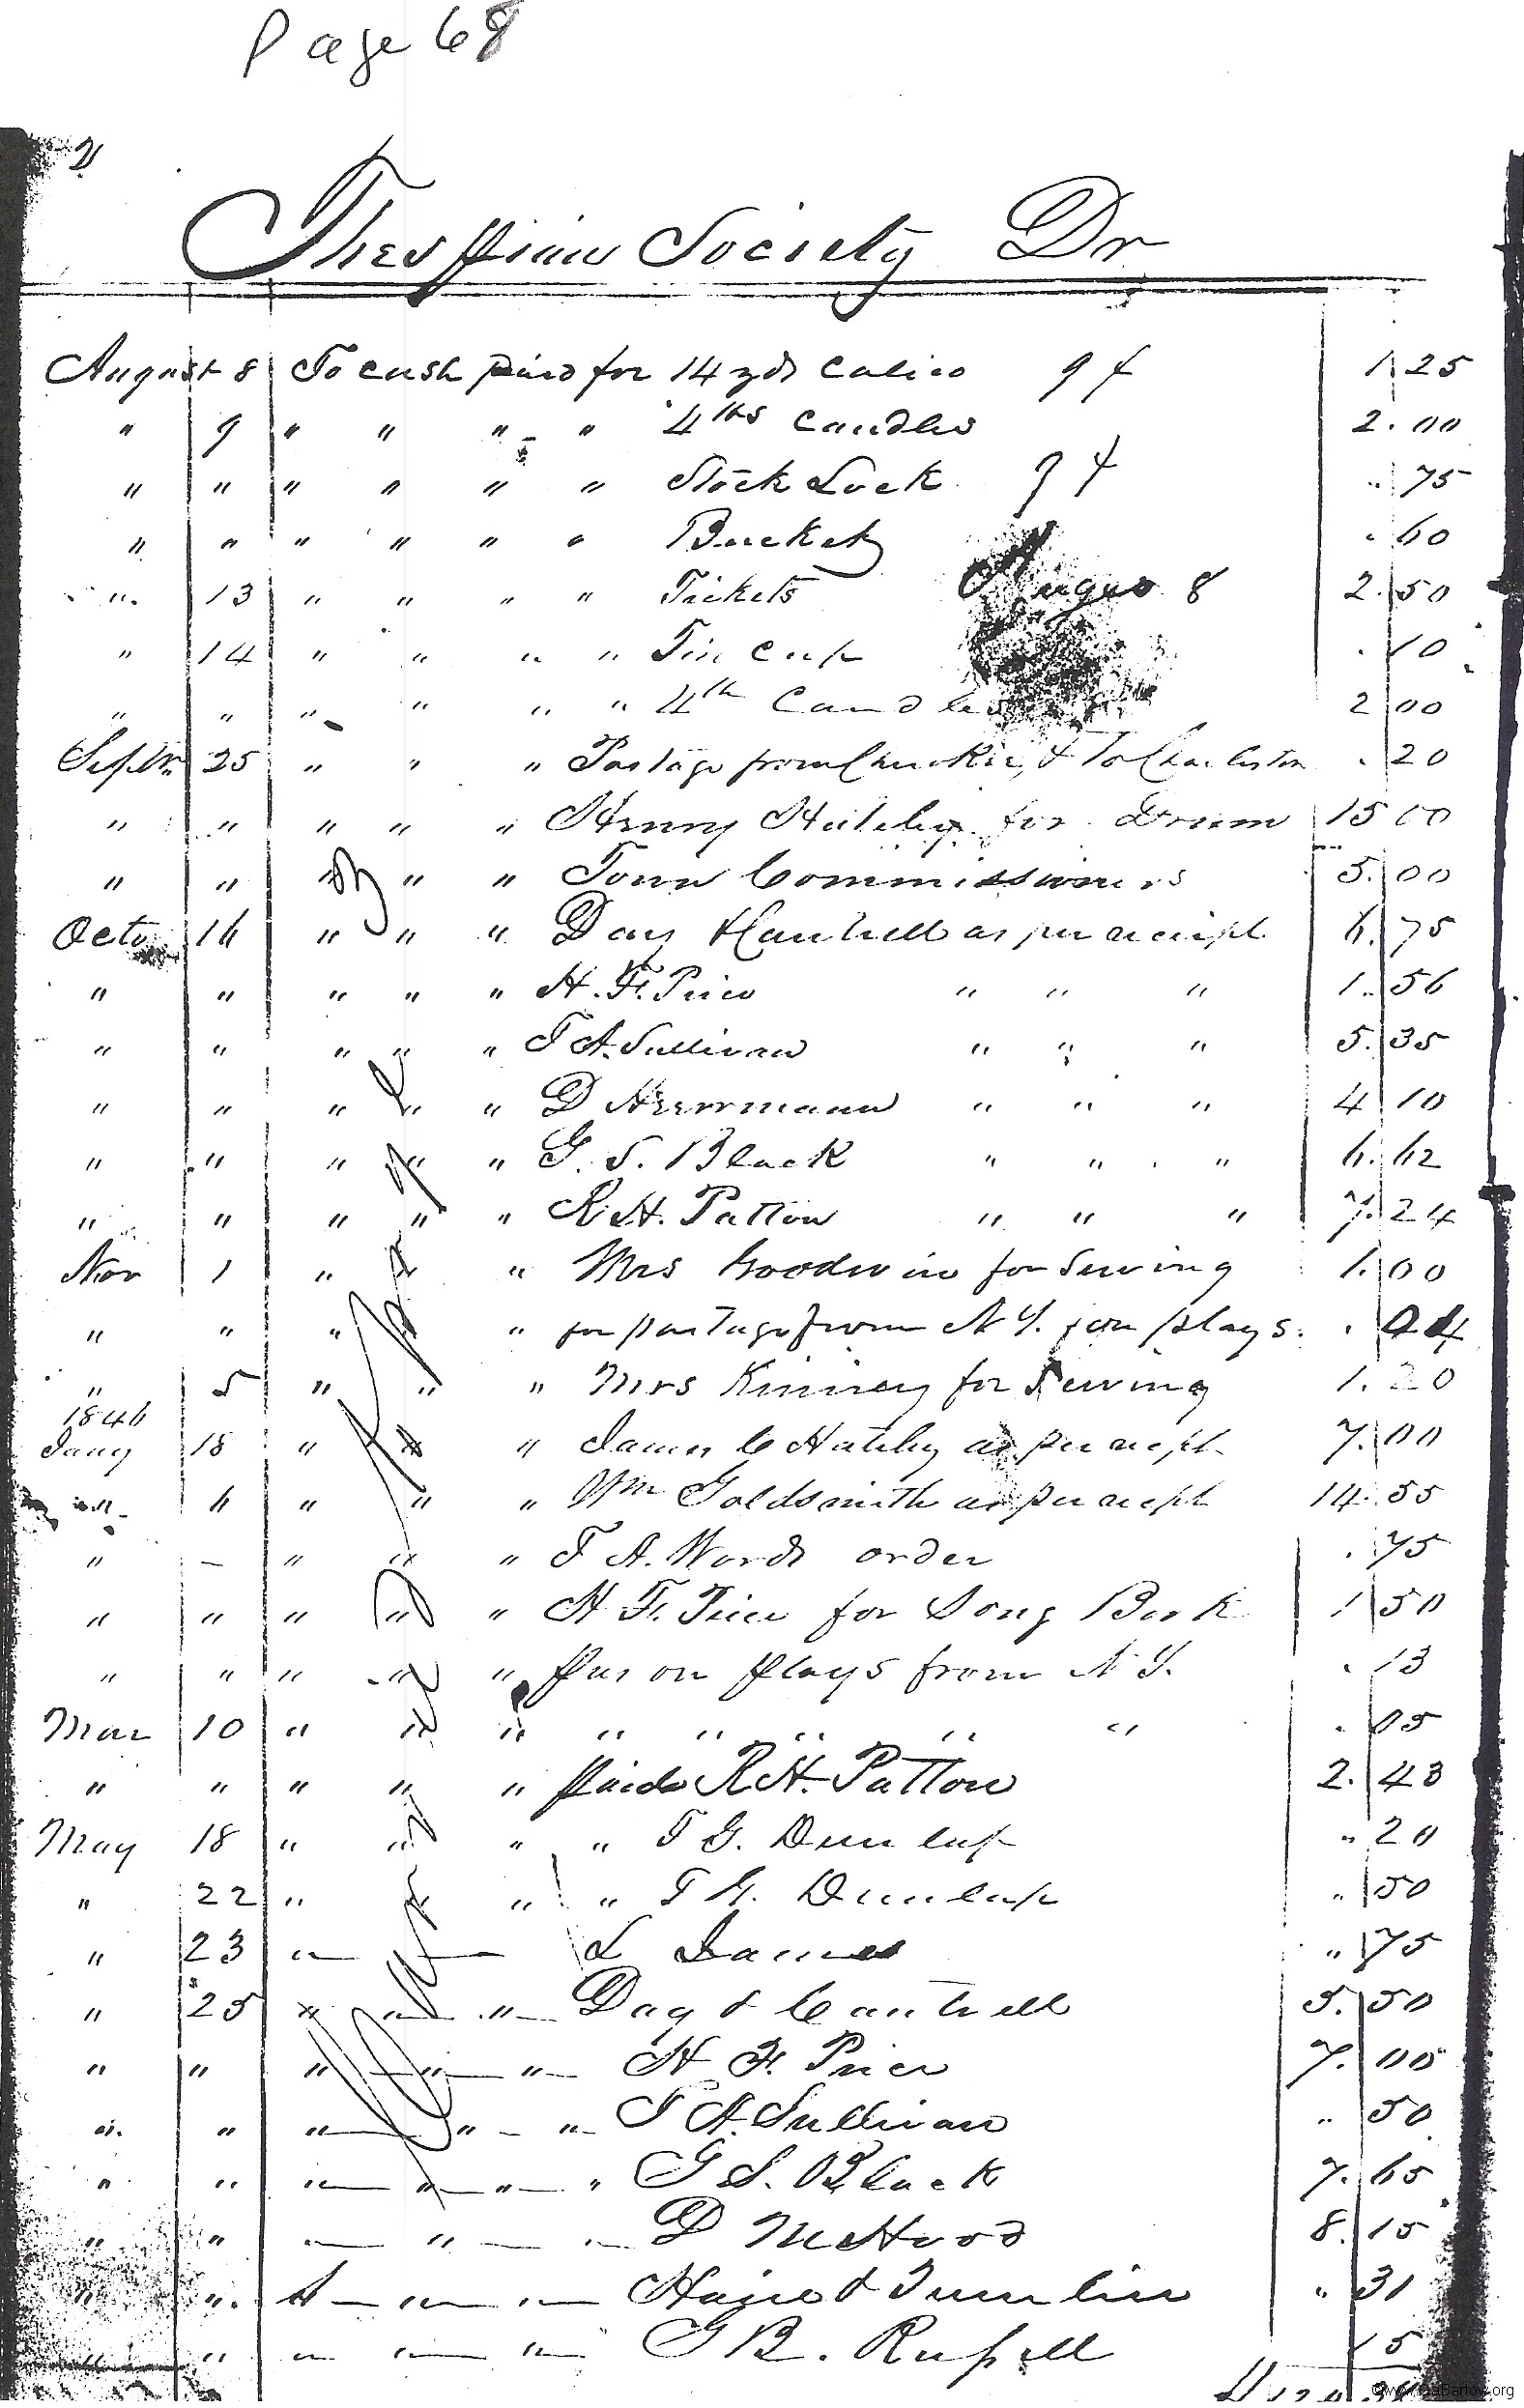 Page 68
Thespian Society Dr
August 8 To cash paid for 14 yds Calico 9 f 1.25
" 9 " " " " 4 lbs Candles 2.00
" " " " " " Stock Lock 9 f " 75
" " " " " " Bucket . 60
" 13 " " " " Tickets Augus 8 2.50
" 14 " " " " Tin Cup . 10
" " " " " " 4 lb Candles 2 00
Septr 25 " " " Postage from & To Charleston . 20
" " " " " Henry for Drum 15 00
" " " " " Town Commissioners 5.00
Octo 16 " " " Day & Cantrell as per receipt 6.75
" " " " " H. F. Price " " " 1.56
" " " " " T A. Sullivan " " " 5.35
" " " " " D Herrmann " " " 4 10
" " " " " G. S. Black " " " 6.62
" " " " " R H. Patton " " " 7.24
Nov 1 " " Mrs Goodwin for Sewing 1.00
" " " " for postage from N Y. for plays . 04
" 5 " " " Mrs Kinney for Sewing 1.20
1846
Jany 18 " " " James C as per recpt 7.00
" 6 " " " Wm Goldsmith as per recpt 14.55
" — " " " T A. Words order . 75
" " " " " H F. Price for Song Book 1 50
" " " " " on plays from N Y. . 13
Mar 10 " " " " " " " " . 05
" " " " " paid R H. Patton 2.43
May 18 " " " " T G. Dunlap " 20
" 22 " " " " T G. Dunlap " 50
" 23 " — — L James " 75
" 25 " " — " — Day & Cantrell 5.50
" " " — " — " — H F. Price 7.00
" " " — " — " — T A. Sullivan " 50
" " " — " — " — " G S. Black 7.65
" " — " — " — D McHood 8.15
" " — " — " — & Tumlin " 31
" " " — " — " — G B. Russell 15
©www.GaBartow.org